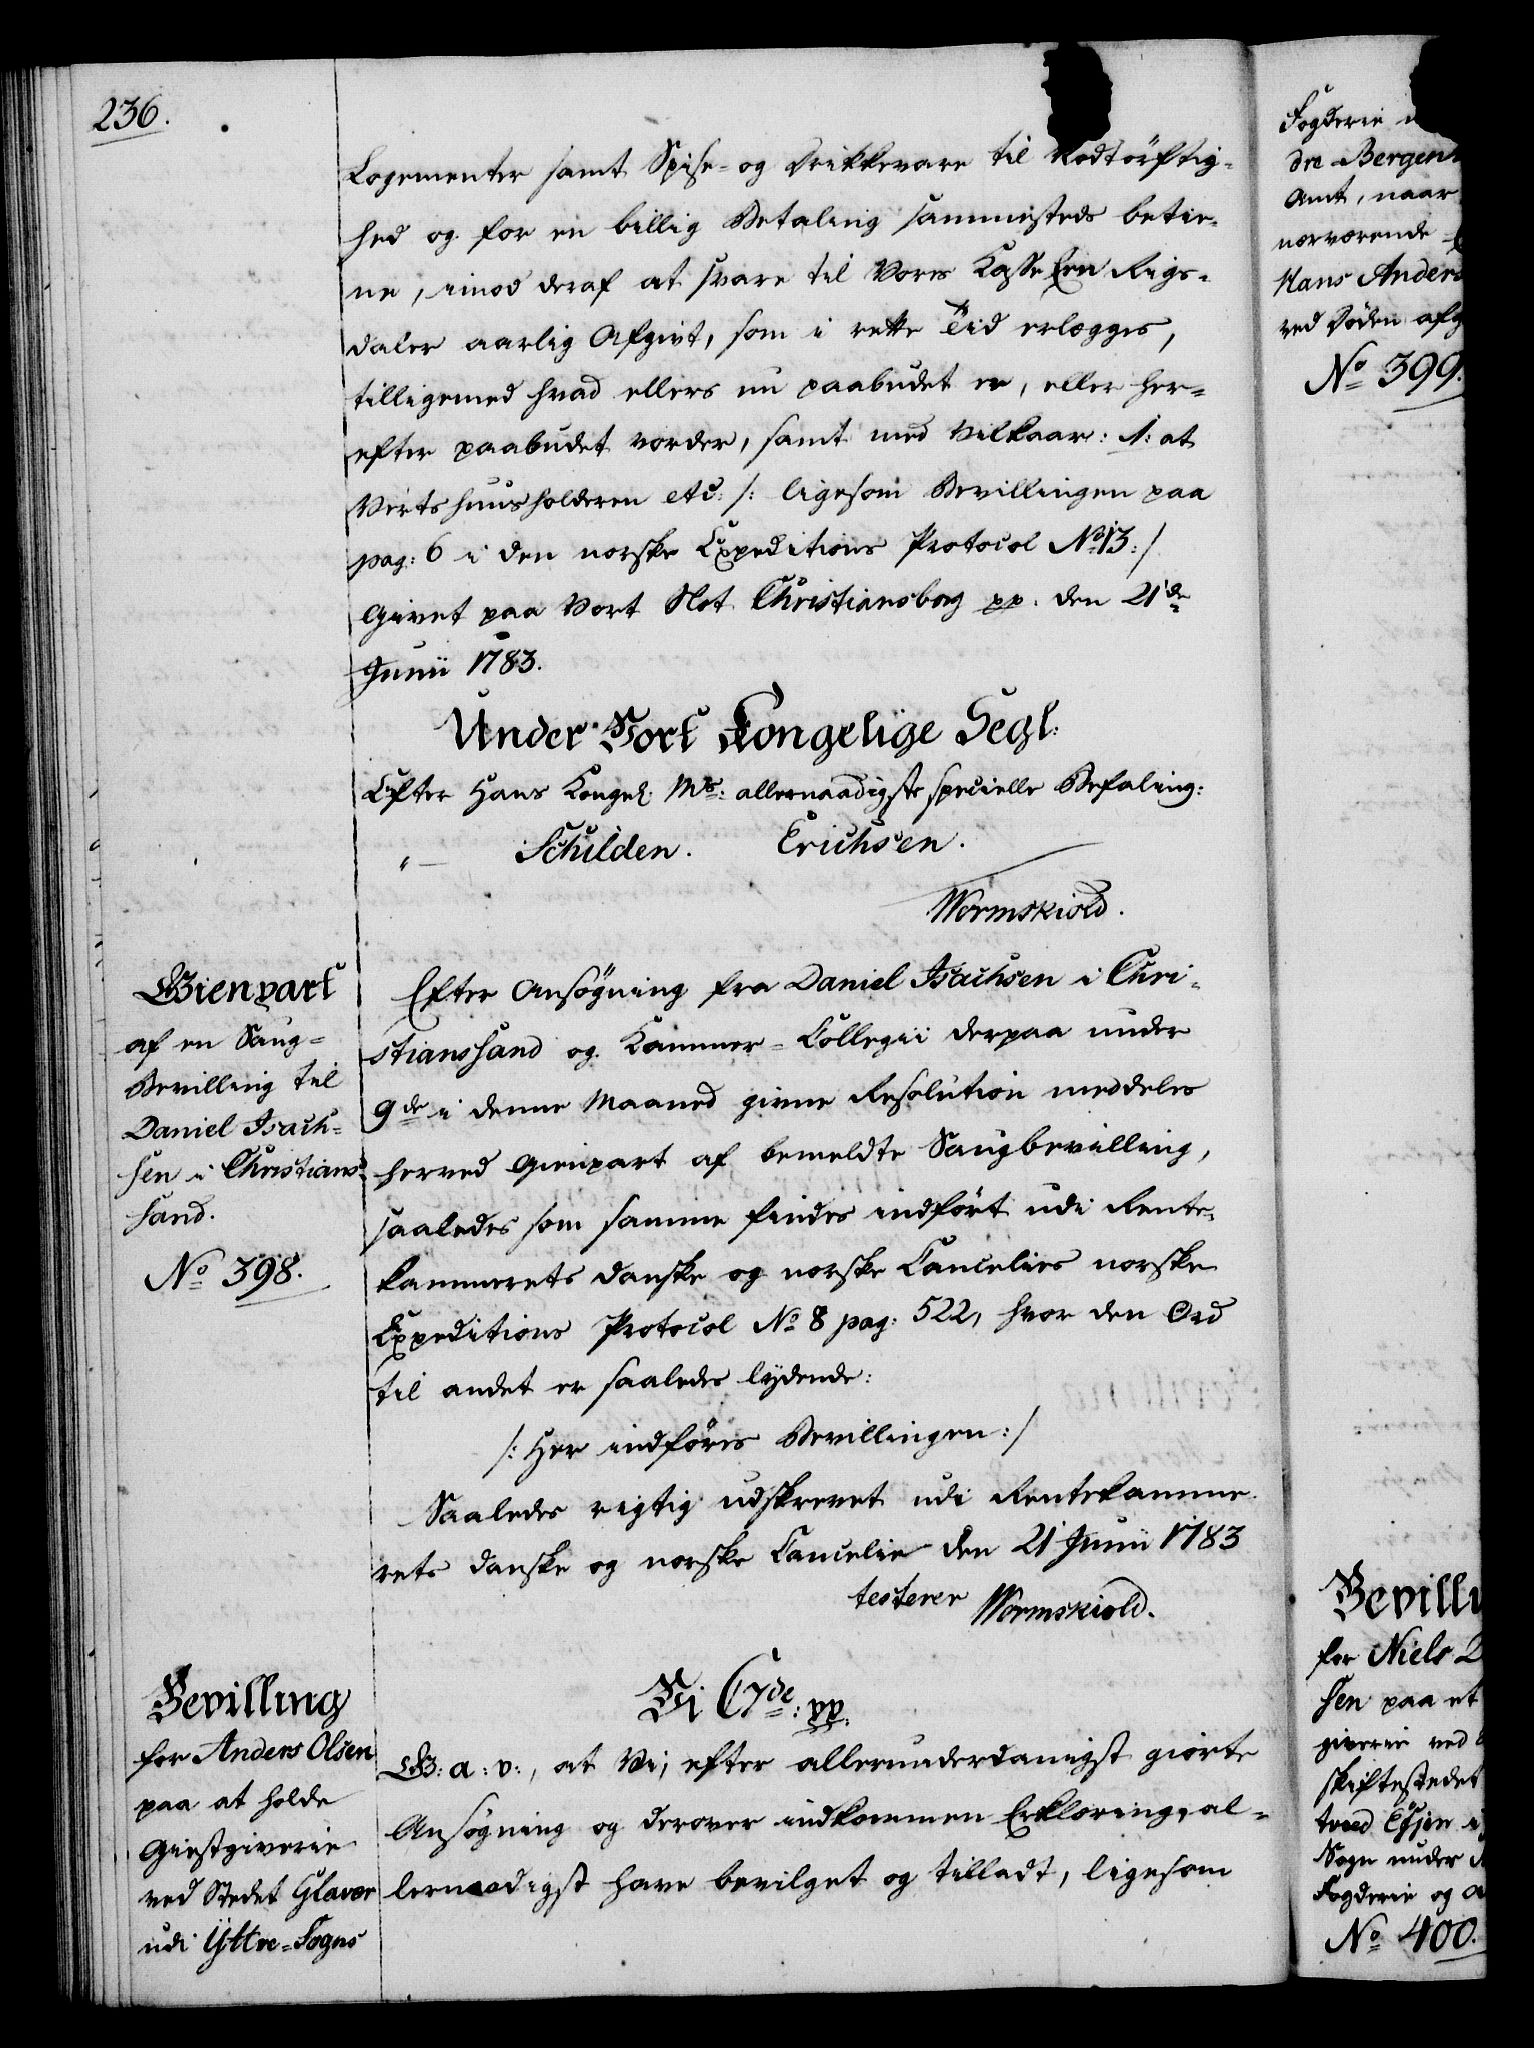 236.
Logementer samt Spise- og Drikkevare til Nodtörftig-
hed og for en billig Betaling sammesteds betie-
ne, imod deraf at svare til Vores Kasse Een Rigs-
daler aarlig Afgivt, som i rette Tid erlægges,
tilligemed hvad ellers nu paabudet er, eller her-
efter paabudet vorder, samt med Vilkaar: 1: at
Vertshuusholderen etc: /: ligesom Bevillingen paa
pag: 6 i den norske Expeditions Protocol No 13:/
Givet paa Vort Slot Christiansborg pp. den 21de
Junii 1783.
Under Vort Kongelige Segl:
Efter Hans Kongel. Ms: allernaadigste specielle Befaling:
"— Schilden. Erichsen.
Wormskiold.
Gienpart
af en Saug-
Bevilling til
Daniel Isach-
sen i Christians
sand.
No 398.
Efter Ansögning fra Daniel Isachsen i Chri-
stianssand og Kammer-Collegii derpaa under
9de i denne Maaned givne Resolution meddeles
herved Gienpart af bemeldte Saugbevilling,
saaledes som samme findes indfört udi Rente-
kammerets danske og norske Cancelies norske
Expeditions Protocol No 8 pag: 522, hvor den Ord
til andet er saaledes lydende:
/: Her indföres Bevillingen:/
Saaledes rigtig udskrevet udi Rentekamme-
rets danske og norske Cancelie den 21 Junii 1783
testerer Wormskiold.
Bevilling
for Anders Olsen
paa at holde
Giestgiverie
ved Stedet Glavær
udi Yttre-Sogns
Vi C7de: pp.
G: a: v:, at Vi, efter allerunderdanigst giorte
Ansögning og derover indkommen Erklæring, al-
lernaadigst have bevilget og tilladt, ligesom
Fogderie
dre Bergen
Amt, naar
nærværende
Hans Anders
ved Döden afg
No 399.
Bevilli
for Niels
sen paa et
giverie ved
skiftestedet
tved
Sogn under
Fogderie og
No 400.